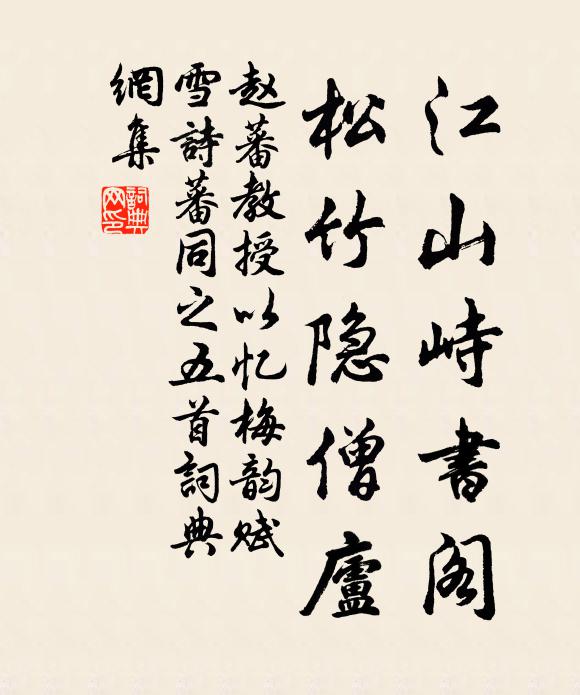 江山峙書阁
松竹隐僧廬
赵蕃教授以忆梅韵赋
雪詩蕃同之五首詞典
網集
詞典
网印